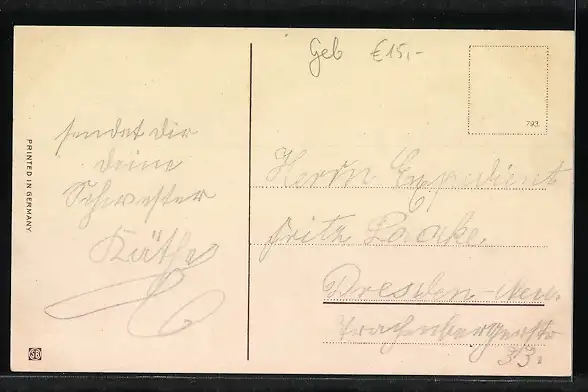 Geb €15,-
793.
PRINTED IN GERMANY.
sendet dir
deine
Schwester
Käthe
Herrn Expedient
Fritz
Dresden-Neu.
Trachenbergerstr
33.